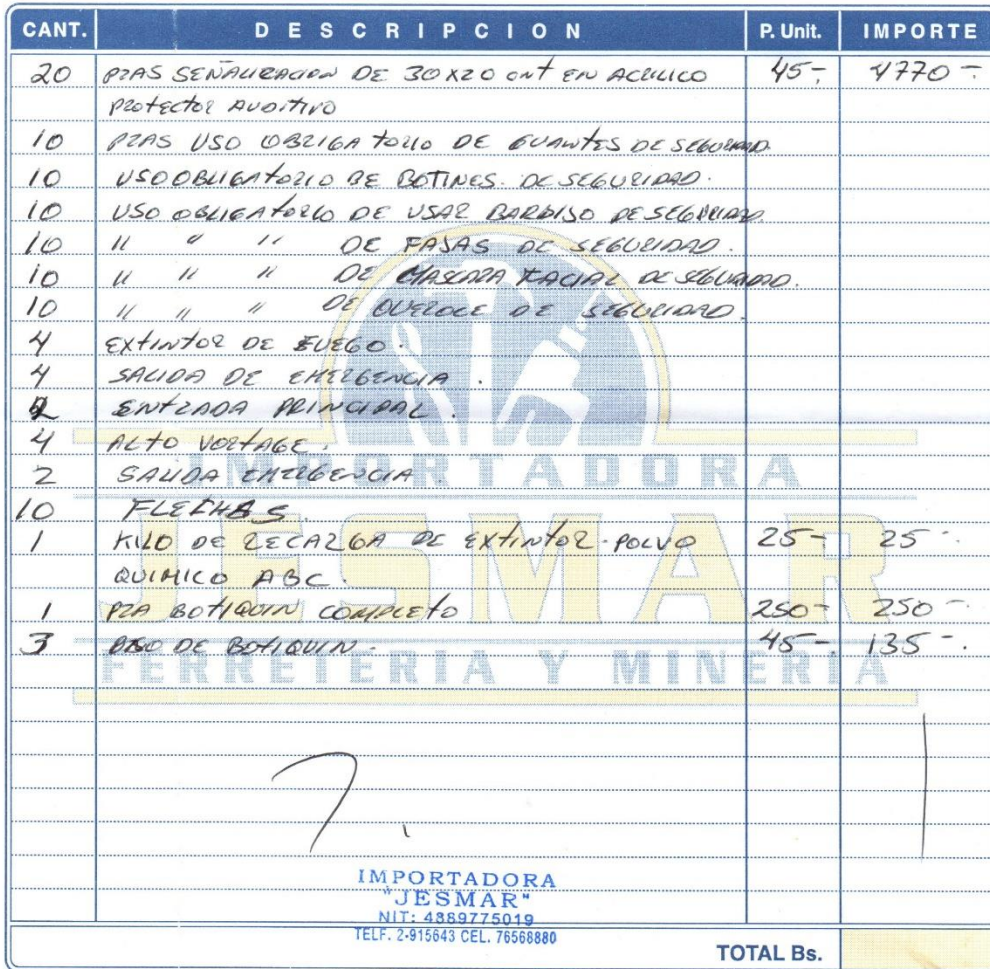 CANT. DESCRIPCION P. Unit. IMPORTE
20 PZAS SEÑALIZACION DE 30X20 CMT EN ACRILICO 45- 4770-
PROTECTOR AUDITIVO
10 PZAS USO OBLIGATORIO DE GUANTES DE SEGURIDAD.
10 USO OBLIGATORIO DE BOTINES. DE SEGURIDAD.
10 USO OBLIGATORIO DE USAR BARBIJO DE SEGURIDAD
10 " " " DE FAJAS DE SEGURIDAD.
10 " " " DE MASCARA FACIAL DE SEGURIDAD.
10 " " " DE OVEROLE DE SEGURIDAD.
4 EXTINTOR DE FUEGO.
4 SALIDA DE EMERGENCIA.
2 ENTRADA PRINCIPAL.
4 ALTO VOLTAGE.
2 SALIDA EMERGENCIA.
10 FLECHAS
1 KILO DE RECARGA DE EXTINTOR - POLVO 25- 25-.
QUIMICO ABC.
1 PZA BOTIQUIN COMPLETO 250- 250-
3 DE BOTIQUIN. 45-. 135-.
IMPORTADORA
JESMAR
FERRETERIA Y MINERIA
IMPORTADORA
"JESMAR"
NIT: 4889775019
TELF. 2-915643 CEL. 76568880
TOTAL Bs.